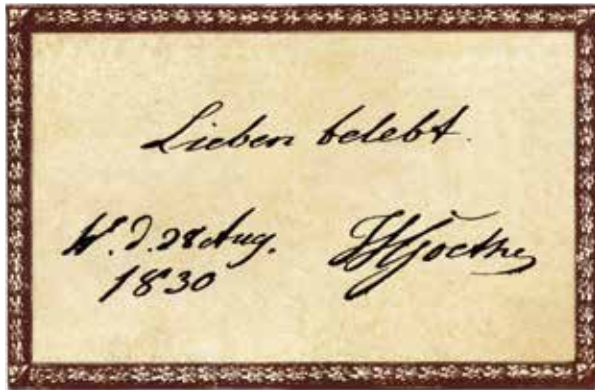 Lieben belebt.
W. d. 28 Aug.
1830
JWGoethe